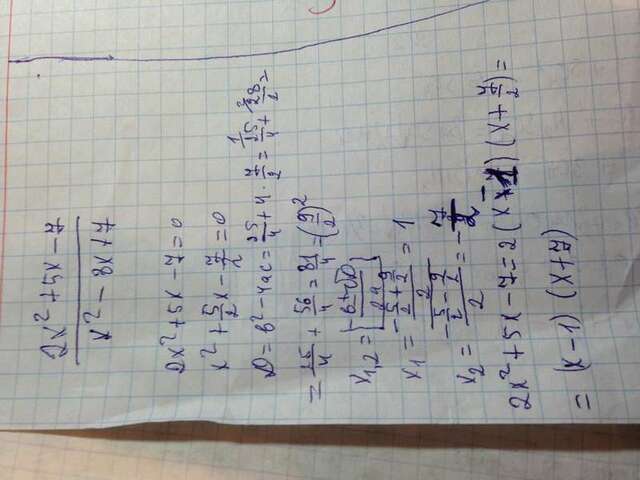 2x² + 5x - 7
x² - 8x + 7
2x² + 5x - 7 = 0
x² + 5/2 x - 7/2 = 0
D = b² - 4ac = 25/4 + 4 · 7/2 = 25/4 + 28/2 =
= 25/4 + 56/4 = 81/4 = (9/2)²
x₁,₂ = [(-b ± √D)/2a]
x₁ = (-5/2 + 9/2)/2 = 1
x₂ = (-5/2 - 9/2)/2 = -7/2
2x² + 5x - 7 = 2(x - 1)(x + 7/2) =
= (x - 1) (x + 7)